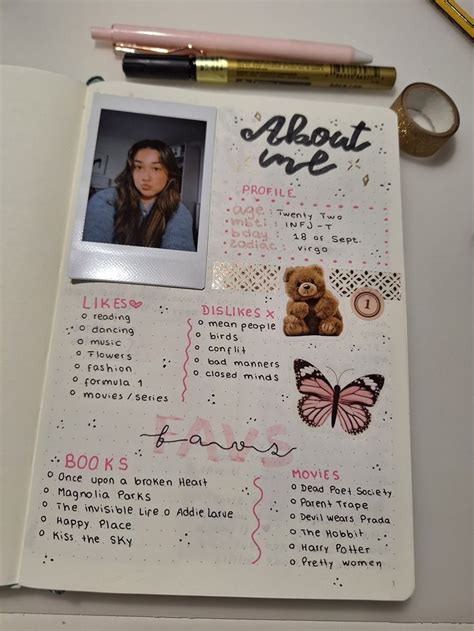 About
me
PROFILE
age : Twenty Two
mbti : INFJ - T
bday : 18 of Sept.
zodiac : virgo
1
LIKES
o reading
o dancing
o music
o Flowers
o fashion
o formula 1
o movies / series
DISLIKES x
o mean people
o birds
o conflit
o bad manners
o closed minds
FAVS
favs
BOOKS
o Once upon a broken Heart
o Magnolia Parks
o The Invisible Life o Addie Larue
o Happy Place
o Kiss the Sky
MOVIES
o Dead Poet Society
o Parent Trape
o Devil wears Prada
o The Hobbit
o Harry Potter
o Pretty women